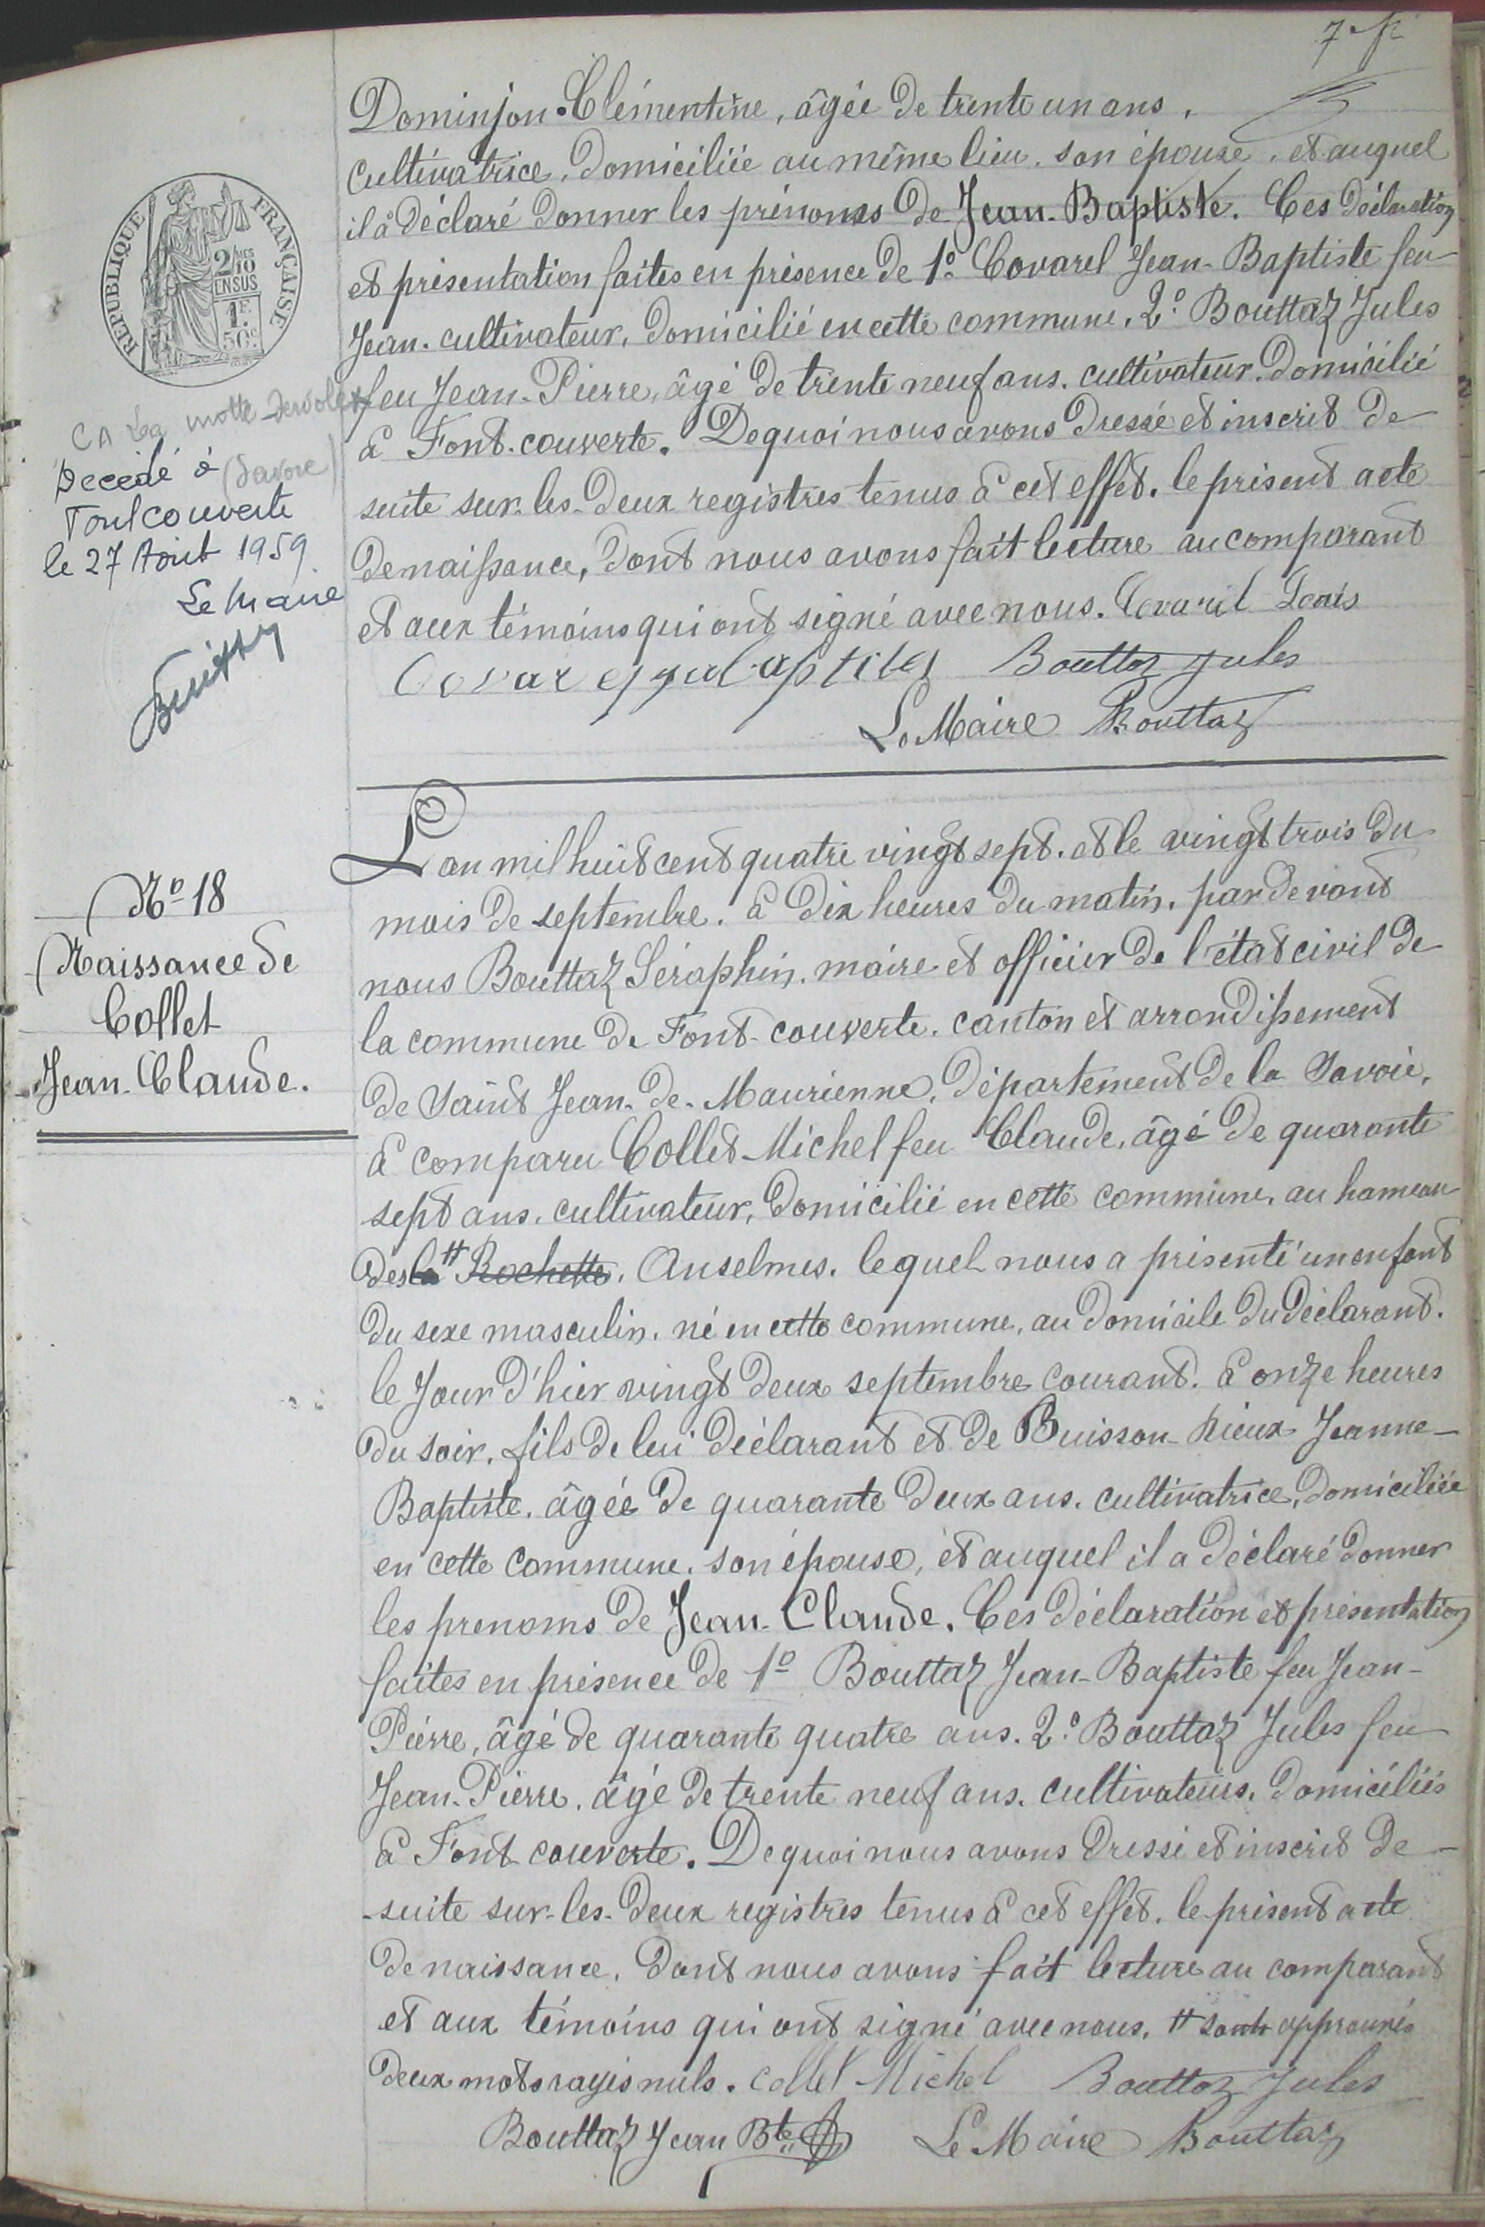 Dominjon Clémentine, âgée de trente un ans,
cultivatrice, domiciliée au même lieu, son épouse, et auquel
il a déclaré donner les prénoms de Jean-Baptiste. Ces déclaration
et présentation faites en présence de 1º Covarel Jean-Baptiste feu
Jean, cultivateur, domicilié en cette commune, 2º Bouttaz Jules
feu Jean-Pierre, âgé de trente neuf ans, cultivateur, domicilié
à Font-couverte. De quoi nous avons dressé et inscrit de
suite sur-les-deux registres tenus à cet effet, le présent acte
de naissance, dont nous avons fait lecture au comparant
et aux témoins qui ont signé avec nous. Covarel
Bouttaz Jules
Le Maire Bouttaz
RÉPUBLIQUE FRANÇAISE
2/10MES
EN SUS
1F.
50C.
Décédé à (Savoie)
Fontcouverte
le 27 Août 1959
Le Maire
Nº 18
Naissance de
Collet
Jean-Claude.
L'an mil huit cent quatre vingt sept, et le vingt trois du
mois de septembre, à dix heures du matin, par devant
nous Bouttaz Séraphin, maire et officier de l'état civil de
la commune de Font-couverte, canton et arrondissement
de Saint Jean-de-Maurienne, département de la Savoie,
à comparu Collet Michel feu Claude, âgé de quarante
sept ans, cultivateur, domicilié en cette commune, au hameau
des la # Rochette, Anselmes, lequel nous a présenté un enfant
du sexe masculin, né en cette commune, au domicile du déclarant,
le Jour d'hier vingt deux septembre courant, à onze heures
du soir, fils de lui déclarant et de Buisson Rieux Jeanne-
Baptiste, âgée de quarante deux ans, cultivatrice, domiciliée
en cette commune, son épouse, et auquel il a déclaré donner
les prenoms de Jean-Claude. Ces déclaration et présentation
faites en présence de 1º Bouttaz Jean-Baptiste feu Jean-
Pierre, âgé de quarante quatre ans, 2º Bouttaz Jules feu
Jean-Pierre, âgé de trente neuf ans, cultivateurs, domiciliés
à Font couverte. De quoi nous avons dressé et inscrit de-
-suite sur-les-deux registres tenus à cet effet, le présent acte
de naissance, dont nous avons fait lecture au comparant
et aux témoins qui ont signé avec nous. # sont approuvés
deux mots rayés nuls. Collet Michel Bouttaz Jules
Bouttaz Jean Bte Le Maire Bouttaz